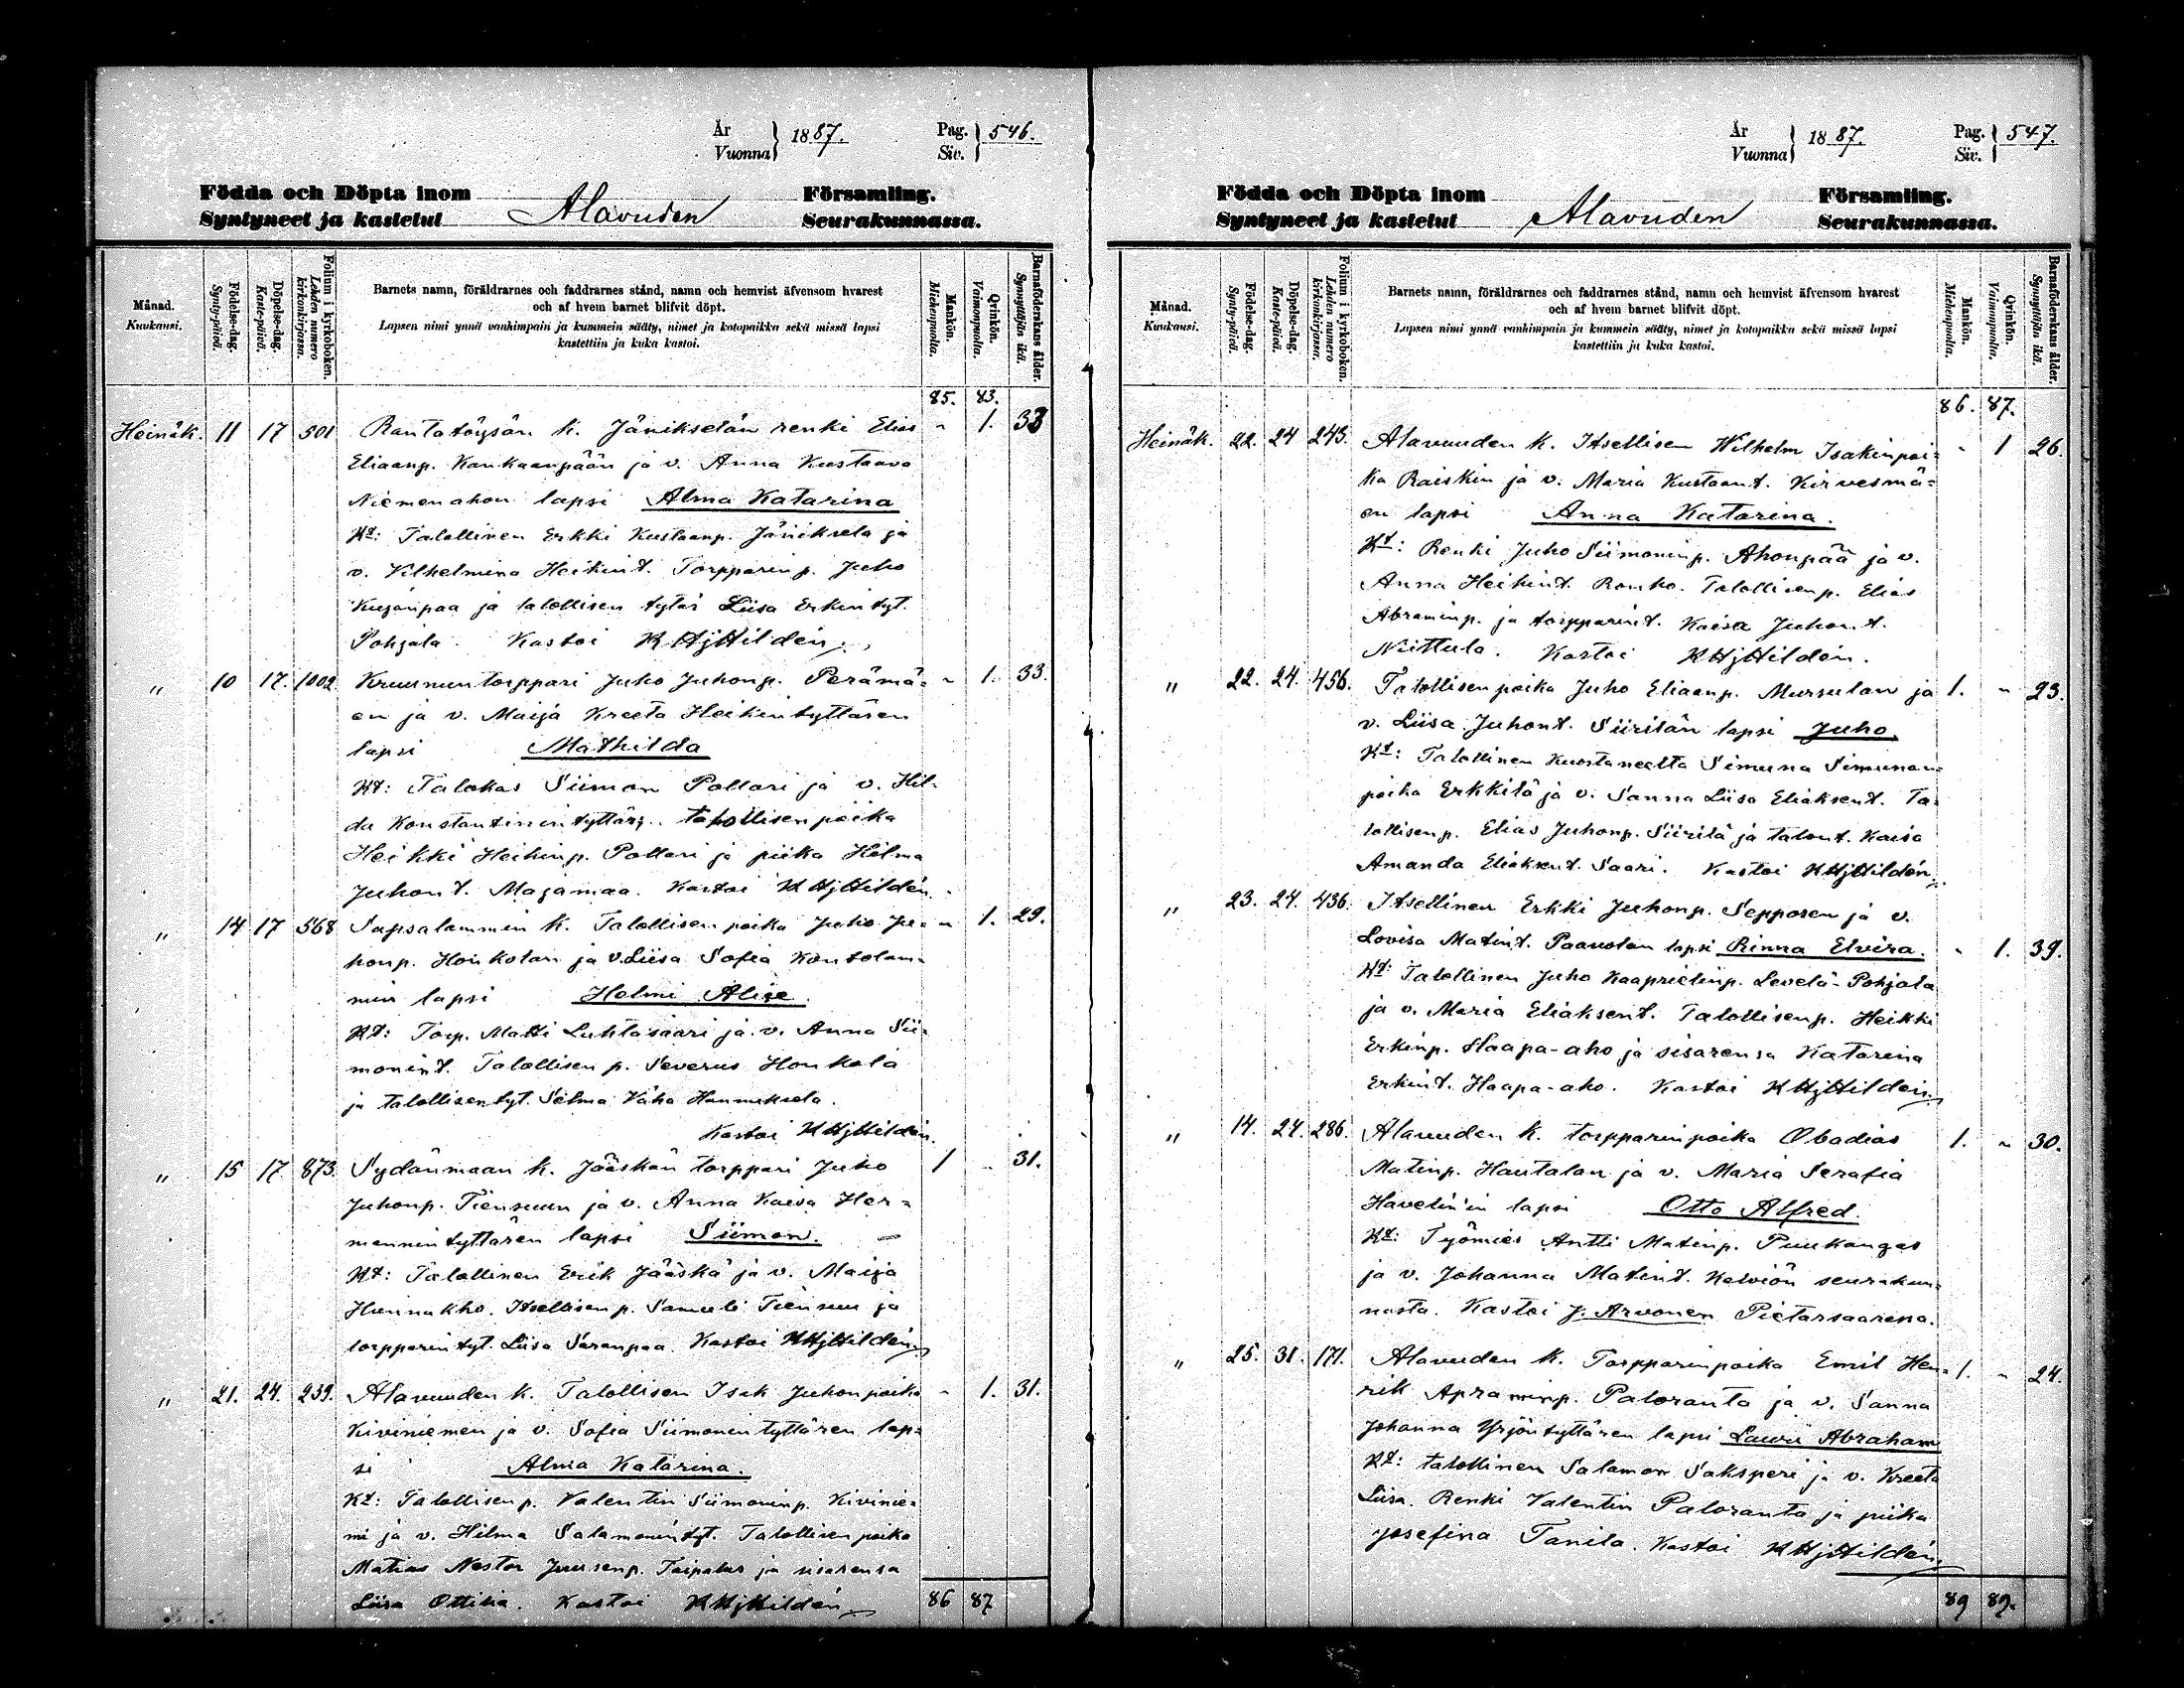 År
Vuonna
1887.
Pag.
Siv.
546.
Födda och Döpta inom
Syntyneet ja kastetut
Alavuden
Församling.
Seurakunnassa.
Månad.
Kuukausi.
Födelse-dag.
Synty-päivä.
Döpelse-dag.
Kaste-päivä.
Folium i kyrkoboken.
Lehden numero
kirkonkirjassa.
Barnets namn, föräldrarnes och faddrarnes stånd, namn och hemvist äfvensom hvarest
och af hvem barnet blifvit döpt.
Lapsen nimi ynnä vanhimpain ja kummein sääty, nimet ja kotopaikka sekä missä lapsi
kastettiin ja kuka kastoi.
Mankön.
Miehenpuolta.
Qvinkön.
Vaimonpuolta.
Barnaföderskans ålder.
Synnyttäjän ikä.
85. 83.
Heinäk. 11 17 501 Rantatöysän k. Jänikselän renki Elias " 1. 33
Eliaanp. Kankaanpään ja v. Anna Kustaava
Niemenahon lapsi Alma Katarina
Kt: Talollinen Erkki Kustaanp. Jäniksela ja
v. Vilhelmina Heikint. Torpparin p. Juho
Kujanpaa ja talollisen tytär Liisa Erkintyt.
Pohjala. Kastoi KHjHildén.
" 10 17. 1002 Kruununtorppari Juho Juhonp. Perämä= " 1. 33.
en ja v. Maija Kreeta Heikintyttären
lapsi Mathilda
Kt: Talokas Siimon Pollari ja v. Hil=
da Konstantinintyttär; talollisen poika
Heikki Heikinp. Pollari ja piika Hilma
Juhont. Majamaa. Kastoi KHjHildén.
" 14 17 568 Sapsalammin k. Talollisen poika Juho Ju= " 1. 29.
honp. Honkolan ja v. Liisa Sofia Kontolam=
min lapsi Helmi Alise.
Kt: Torp. Matti Luhtasaari ja v. Anna Sii=
monint. Talollisen p. Severus Honkola
ja talollisentyt. Selma Vaha Hannuksela.
Kastoi KHjHildén.
" 15 17. 873. Sydänmaan k. Jääskän torppari Juho 1 " 31.
Juhonp. Tiensuun ja v. Anna Kaisa Her=
mannintyttären lapsi Siimon.
Kt: Talollinen Erik Jääskä ja v. Maija
Itsellisen p. Samuli Tiensuu ja
torpparintyt. Liisa Saranpaa. Kastoi KHjHildén
" 21. 24. 239. Alavuuden k. Talollisen Isak Juhonpoika " 1. 31.
Kiviniemen ja v. Sofia Siimonintyttären lap=
si Alma Katarina.
Kt: Talollisen p. Valentin Siimoninp. Kivinie=
mi ja v. Hilma Salamonintyt. Talollisen poika
Matias Nestor Juusenp. Taipalus ja sisarensa
Liisa Ottilia. Kastoi KHjHildén
86 87
År
Vuonna
1887.
Pag.
Siv.
547.
Födda och Döpta inom
Syntyneet ja kastetut
Alavuden
Församling.
Seurakunnassa.
Månad.
Kuukausi.
Födelse-dag.
Synty-päivä.
Döpelse-dag.
Kaste-päivä.
Folium i kyrkoboken.
Lehden numero
kirkonkirjassa.
Barnets namn, föräldrarnes och faddrarnes stånd, namn och hemvist äfvensom hvarest
och af hvem barnet blifvit döpt.
Lapsen nimi ynnä vanhimpain ja kummein sääty, nimet ja kotopaikka sekä missä lapsi
kastettiin ja kuka kastoi.
Mankön.
Miehenpuolta.
Qvinkön.
Vaimonpuolta.
Barnaföderskans ålder.
Synnyttäjän ikä.
86. 87.
Heinäk. 22. 24 243. Alavuuden k. Itsellisen Wilhelm Isakinpoi= " 1 26.
ka Raiskin ja v. Maria Kustaant. Kirvesmä=
en lapsi Anna Katarina.
Kt: Renki Juho Siimoninp. Ahonpää ja v.
Anna Heikint. Ronko. Talollisen p. Elias
Abraminp. ja torpparint. Kaisa Juhont.
Niittula. Kastoi KHjHildén.
" 22. 24. 456. Talollisen poika Juho Eliaanp. Mursulan ja 1. " 23.
v. Liisa Juhont. Siirilän lapsi Juho.
Kt: Talollinen Kuortaneelta Simuna Simunan=
poika Erkkilä ja v. Sanna Liisa Eliaksent. Ta=
lollisen p. Elias Juhonp. Siirilä ja talont. Kaisa
Amanda Eliaksent. Saari. Kastoi KHjHildén.
" 23. 24. 436. Itsellinen Erkki Juhonp. Sepposen ja v.
Lovisa Matint. Paavolan lapsi Rinna Elvira. " 1. 39.
Kt: Talollinen Juho Kaaprielinp. Levelä-Pohjala
ja v. Maria Eliaksent. Talollisen p. Heikki
Erkinp. Haapa-aho ja sisarensa Katarina
Erkint. Haapa-aho. Kastoi KHjHildén.
" 14. 24. 286. Alavuuden k. torpparinpoika Obadias 1. " 30.
Matinp. Hautalan ja v. Maria Serafia
Havelin'in lapsi Otto Alfred.
Kt: Työmies Antti Matinp. Puukangas
ja v. Johanna Matint. Kelviön seurakun=
nasta. Kastoi J. Arvonen Pietarsaaressa.
" 25. 31. 171. Alavuuden k. Torpparinpoika Emil Hen= 1. " 24.
rik Apraminp. Paloranta ja v. Sanna
Johanna Yrjöntyttären lapsi Lauri Abraham
Kt: talollinen Salamon Saksperi ja v. Kreeta
Liisa. Renki Valentin Paloranta ja piika
Josefina Tanila. Kastoi KHjHildén
89 89.